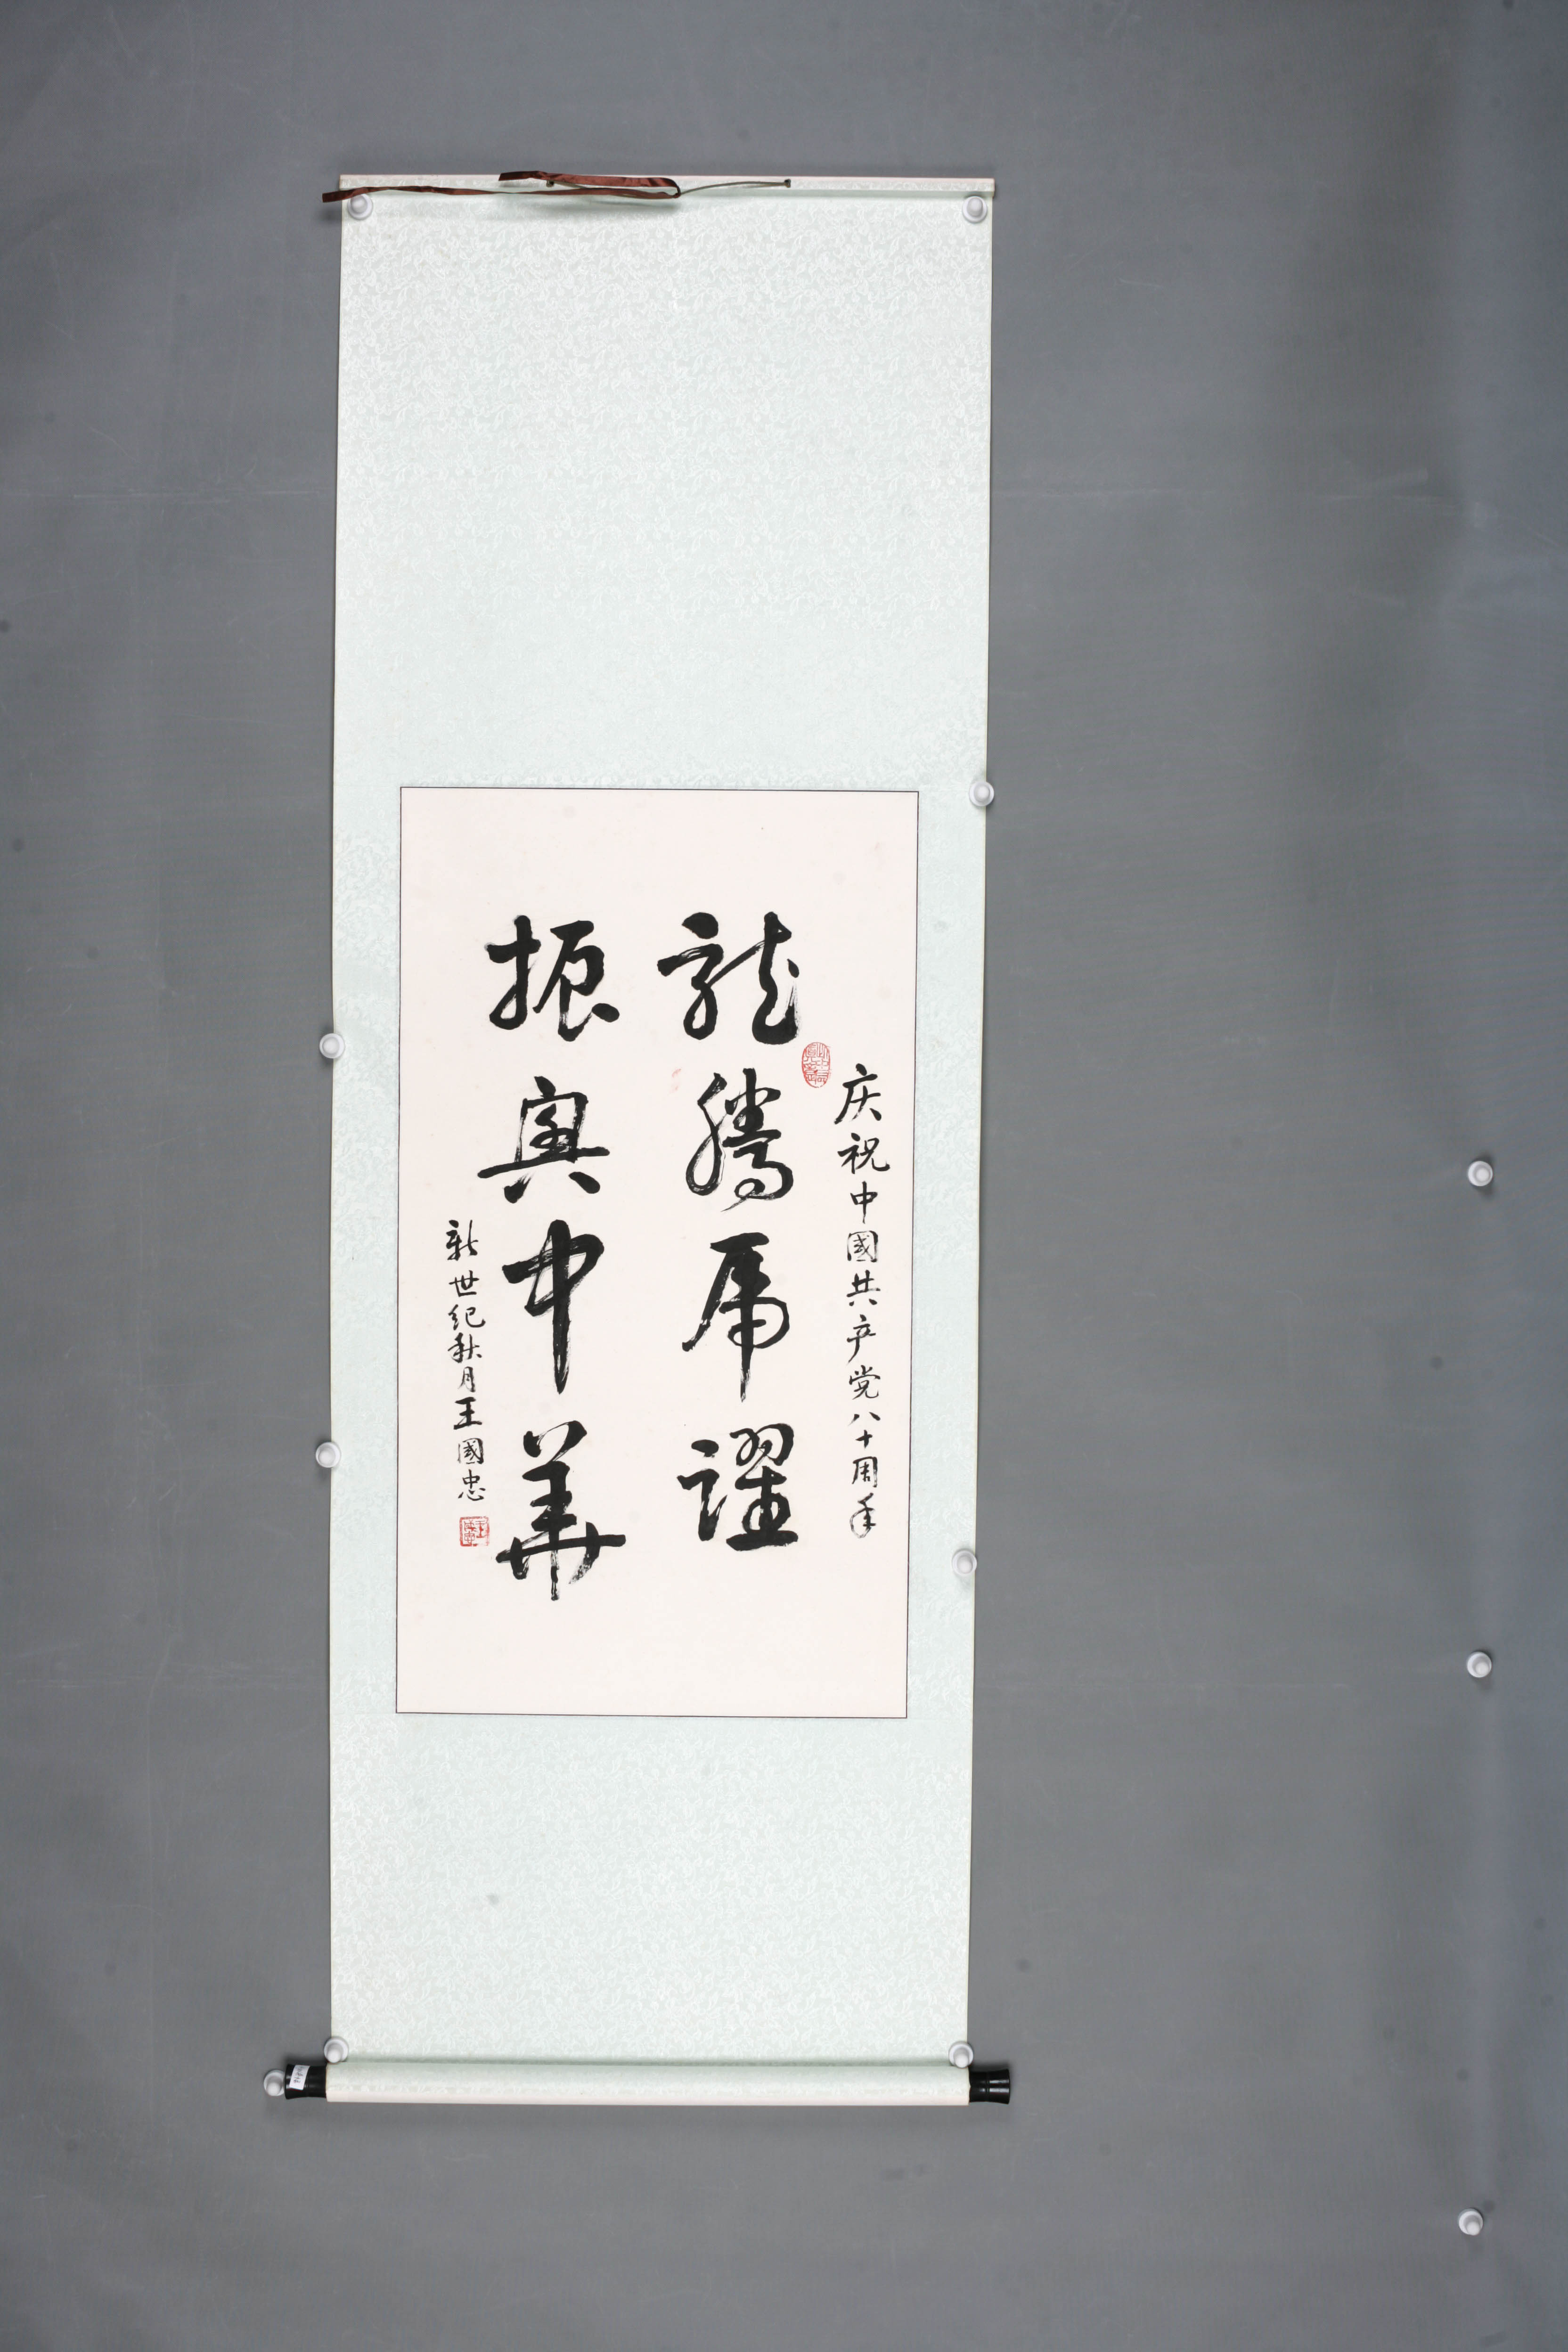 庆祝中國共产党八十周年
龍騰虎躍
振興中華
新世纪秋月王國忠